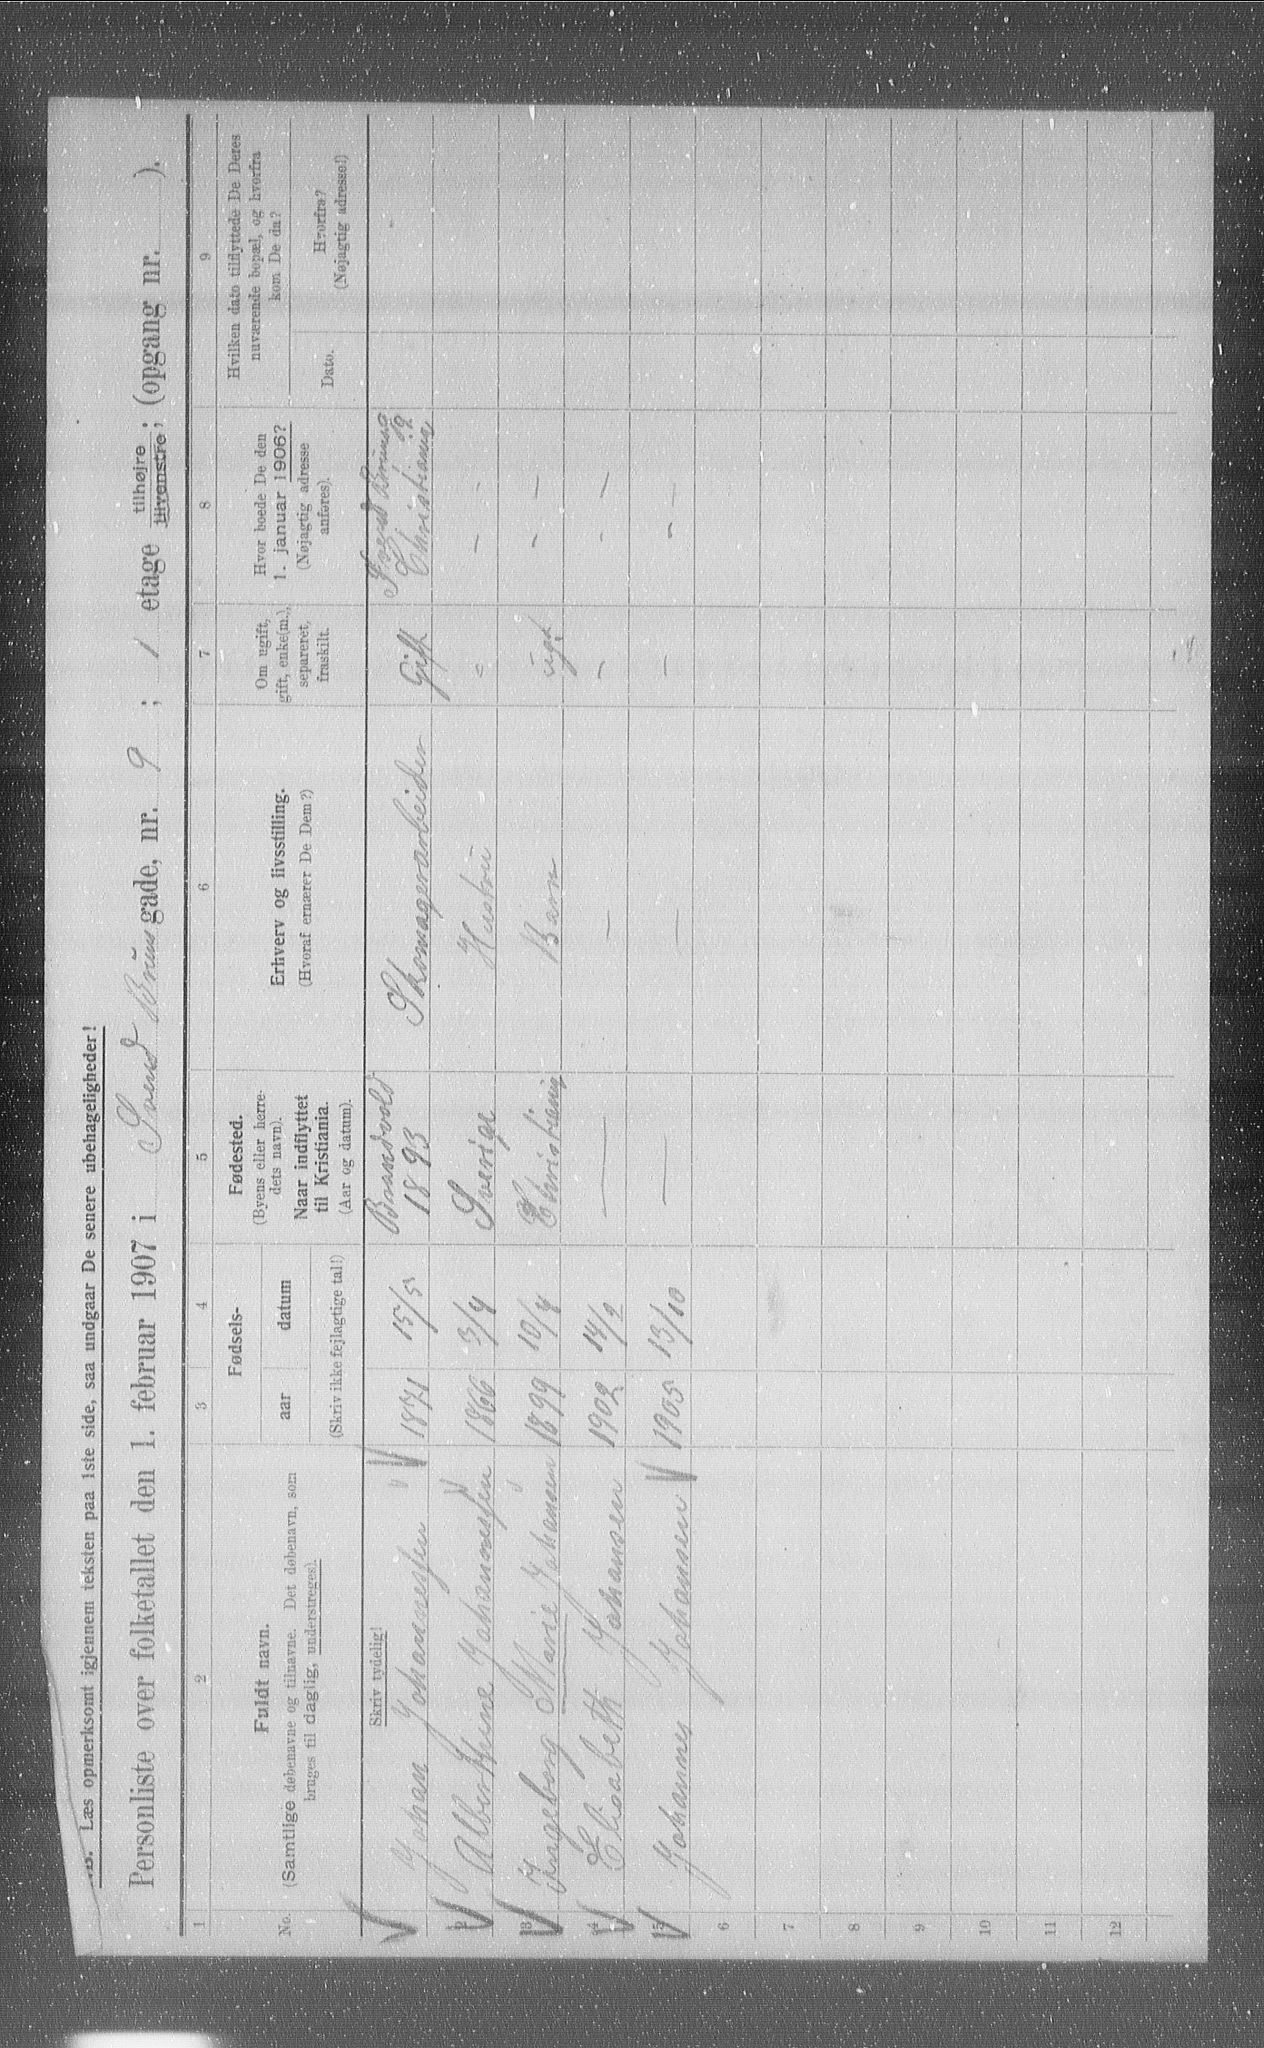 Læs opmerksomt igjennem teksten paa 1ste side, saa undgaar De senere ubehageligheder!
Personliste over folketallet den 1. februar 1907 i Svend Bruns gade, nr. 9 ; 1 etage tilhøjre ; (opgang nr. ).
tilvenstre
1 2 3 4 5 6 7 8 9
No.
Fuldt navn.
(Samtlige døbenavne og tilnavne. Det døbenavn, som
bruges til daglig, understreges).
Fødsels-
aar
datum
(Skriv ikke fejlagtige tal!)
Fødested.
(Byens eller herre-
dets navn).
Naar indflyttet
til Kristiania.
(Aar og datum).
Erhverv og livsstilling.
(Hvoraf ernærer De Dem?)
Om ugift,
gift, enke(m.),
separeret,
fraskilt.
Hvor boede De den
1. januar 1906?
(Nøjagtig adresse
anføres).
Hvilken dato tilflyttede De Deres
nuværende bopæl, og hvorfra
kom De da?
Dato.
Hvorfra?
(Nøjagtig adresse!)
Skriv tydelig!
Johan Johannessen 1871 15/5 Brandvold 1893 Skomagerarbeider Gift Svend Brunsg 9 Christiania
2 Albertine Johannessen 1866 3/4 Sverige Hustru " — —
3 Ingeborg Marie Johansen 1899 10/4 Christiania Barn ugt — —
4 Elisabeth Johansen 1902 14/2 — — — — —
5 Johannes Johansen 1905 13/10 — — — — —
6
7
8
9
10
11
12